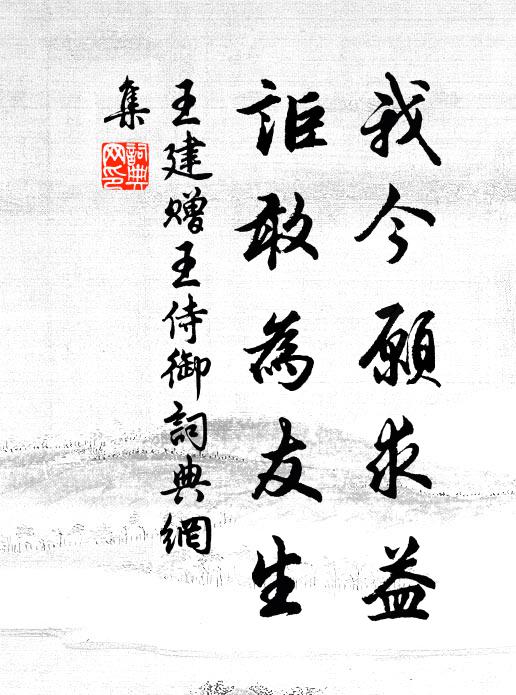 我今願求益
詎敢為友生
王建贈王侍御詞典網
集
詞典
网印